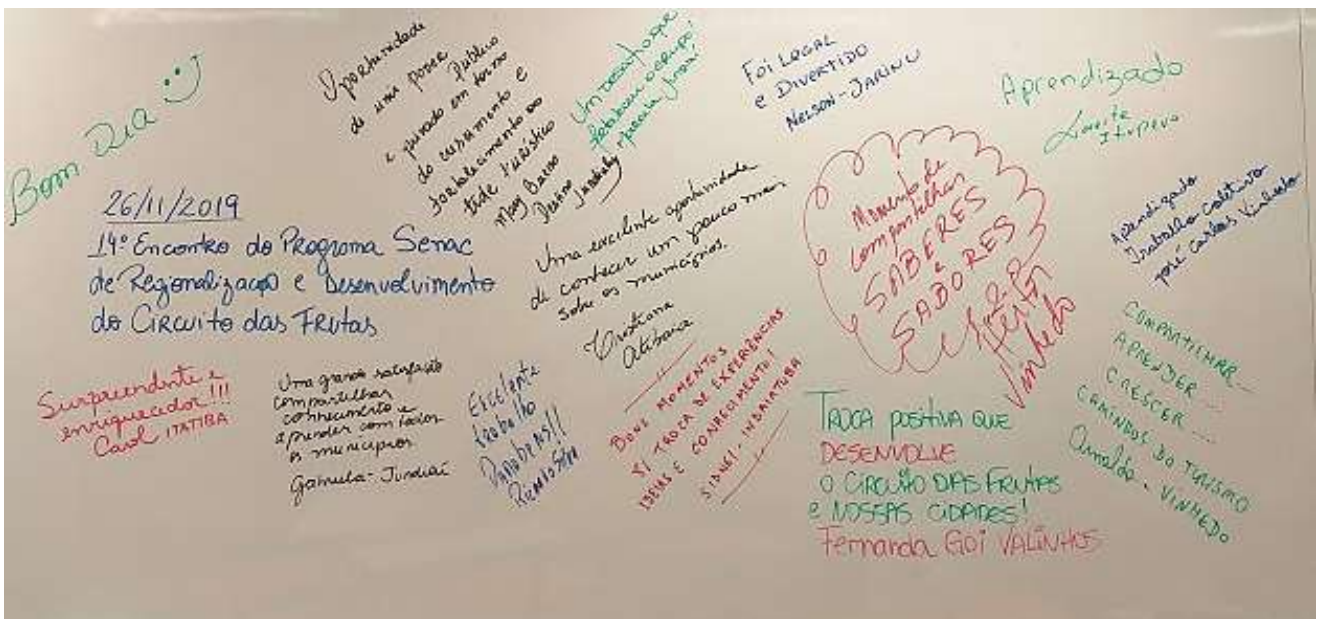 Bom Dia
26/11/2019
14º Encontro do Programa Senac
de Regionalização e Desenvolvimento
do Circuito das Frutas
Oportunidade
de uma poder Público
e privado em torno
do crescimento e
fortalecimento do
turístico
Um desafio que
para Jundiaí
Foi Legal
e Divertido
Nelson - Jarinu
Aprendizado
Itupeva
Uma excelente oportunidade
de conhecer um pouco mais
sobre os municípios.
Cristiana
Atibaia
Momento de
compartilhar
SABERES
e
SABORES
Vinhedo
Aprendizado
Trabalho coletivo
José Carlos Vinhedo
Surpreendente e
enriquecedor!!!
Carol ITATIBA
Uma grande satisfação
compartilhar
conhecimento e
aprender com todos
os municípios
Jundiaí
Excelente
trabalho
Parabéns!!
BONS MOMENTOS
TROCA DE EXPERIÊNCIAS
IDEIAS E CONHECIMENTO!
SIDNEI - INDAIATUBA
TROCA POSITIVA QUE
DESENVOLVE
O CIRCUITO DAS FRUTAS
E NOSSAS CIDADES!
Fernanda Goi VALINHOS
COMPARTILHAR...
APRENDER...
CRESCER...
CAMINHOS DO TURISMO
Arnaldo - VINHEDO